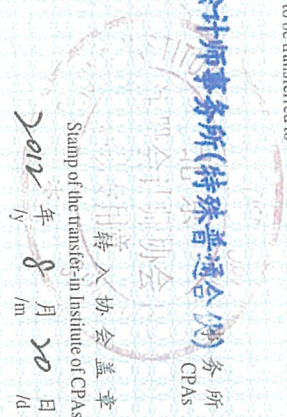 to be transferred to
计师事务所(特殊普通合伙)
务所
CPAs
转入协会盖章
Stamp of the transfer-in Institute of CPAs
2012年8月20日
/y /m /d